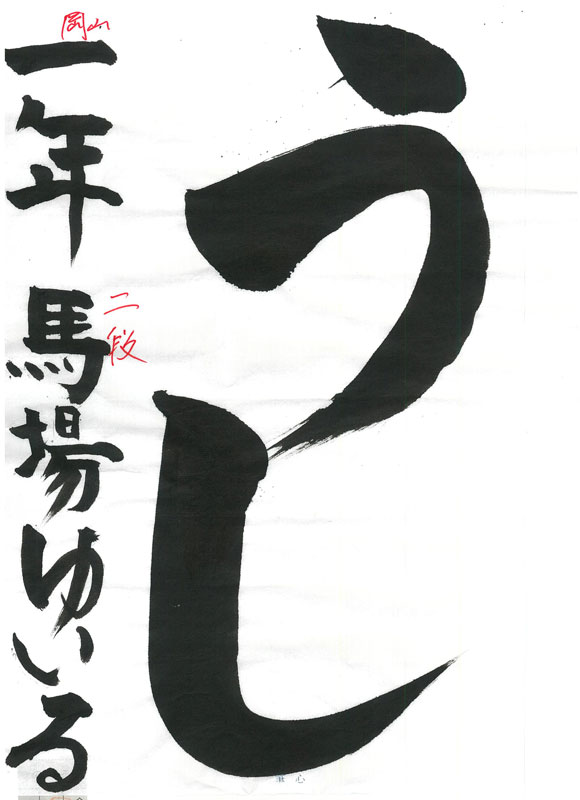 うし
岡山
一年 馬場ゆいる
二段